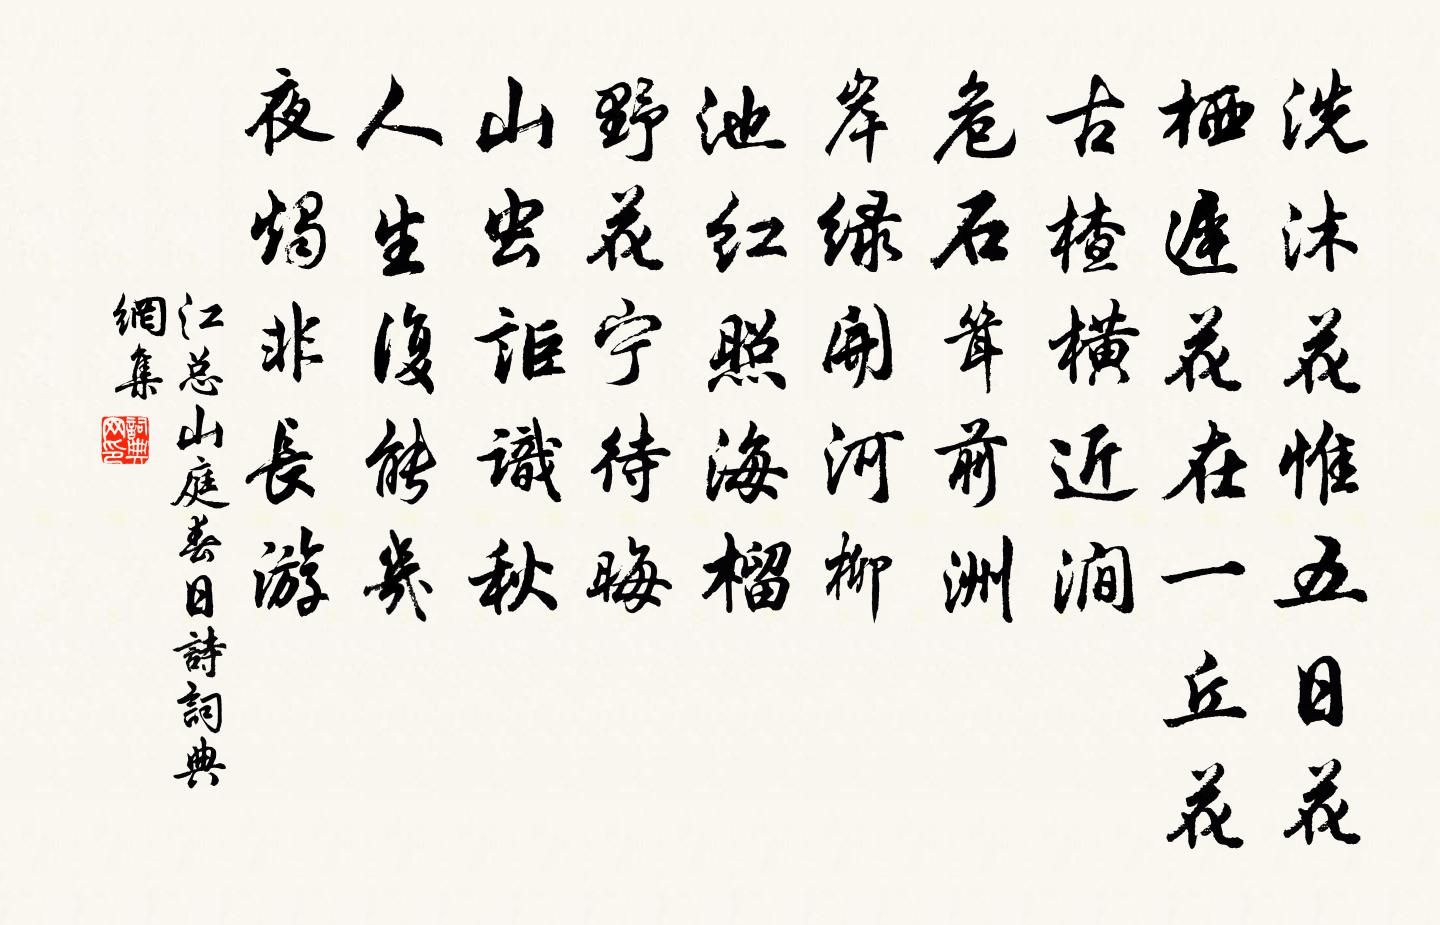 洗沐花惟五日花
栖遲花在一丘花
古楂橫近澗
危石耸前洲
岸绿開河柳
池红照海榴
野花宁待晦
山虫詎識秋
人生復能幾
夜燭非長游
江总山庭春日詩詞典
網集
詞典网印